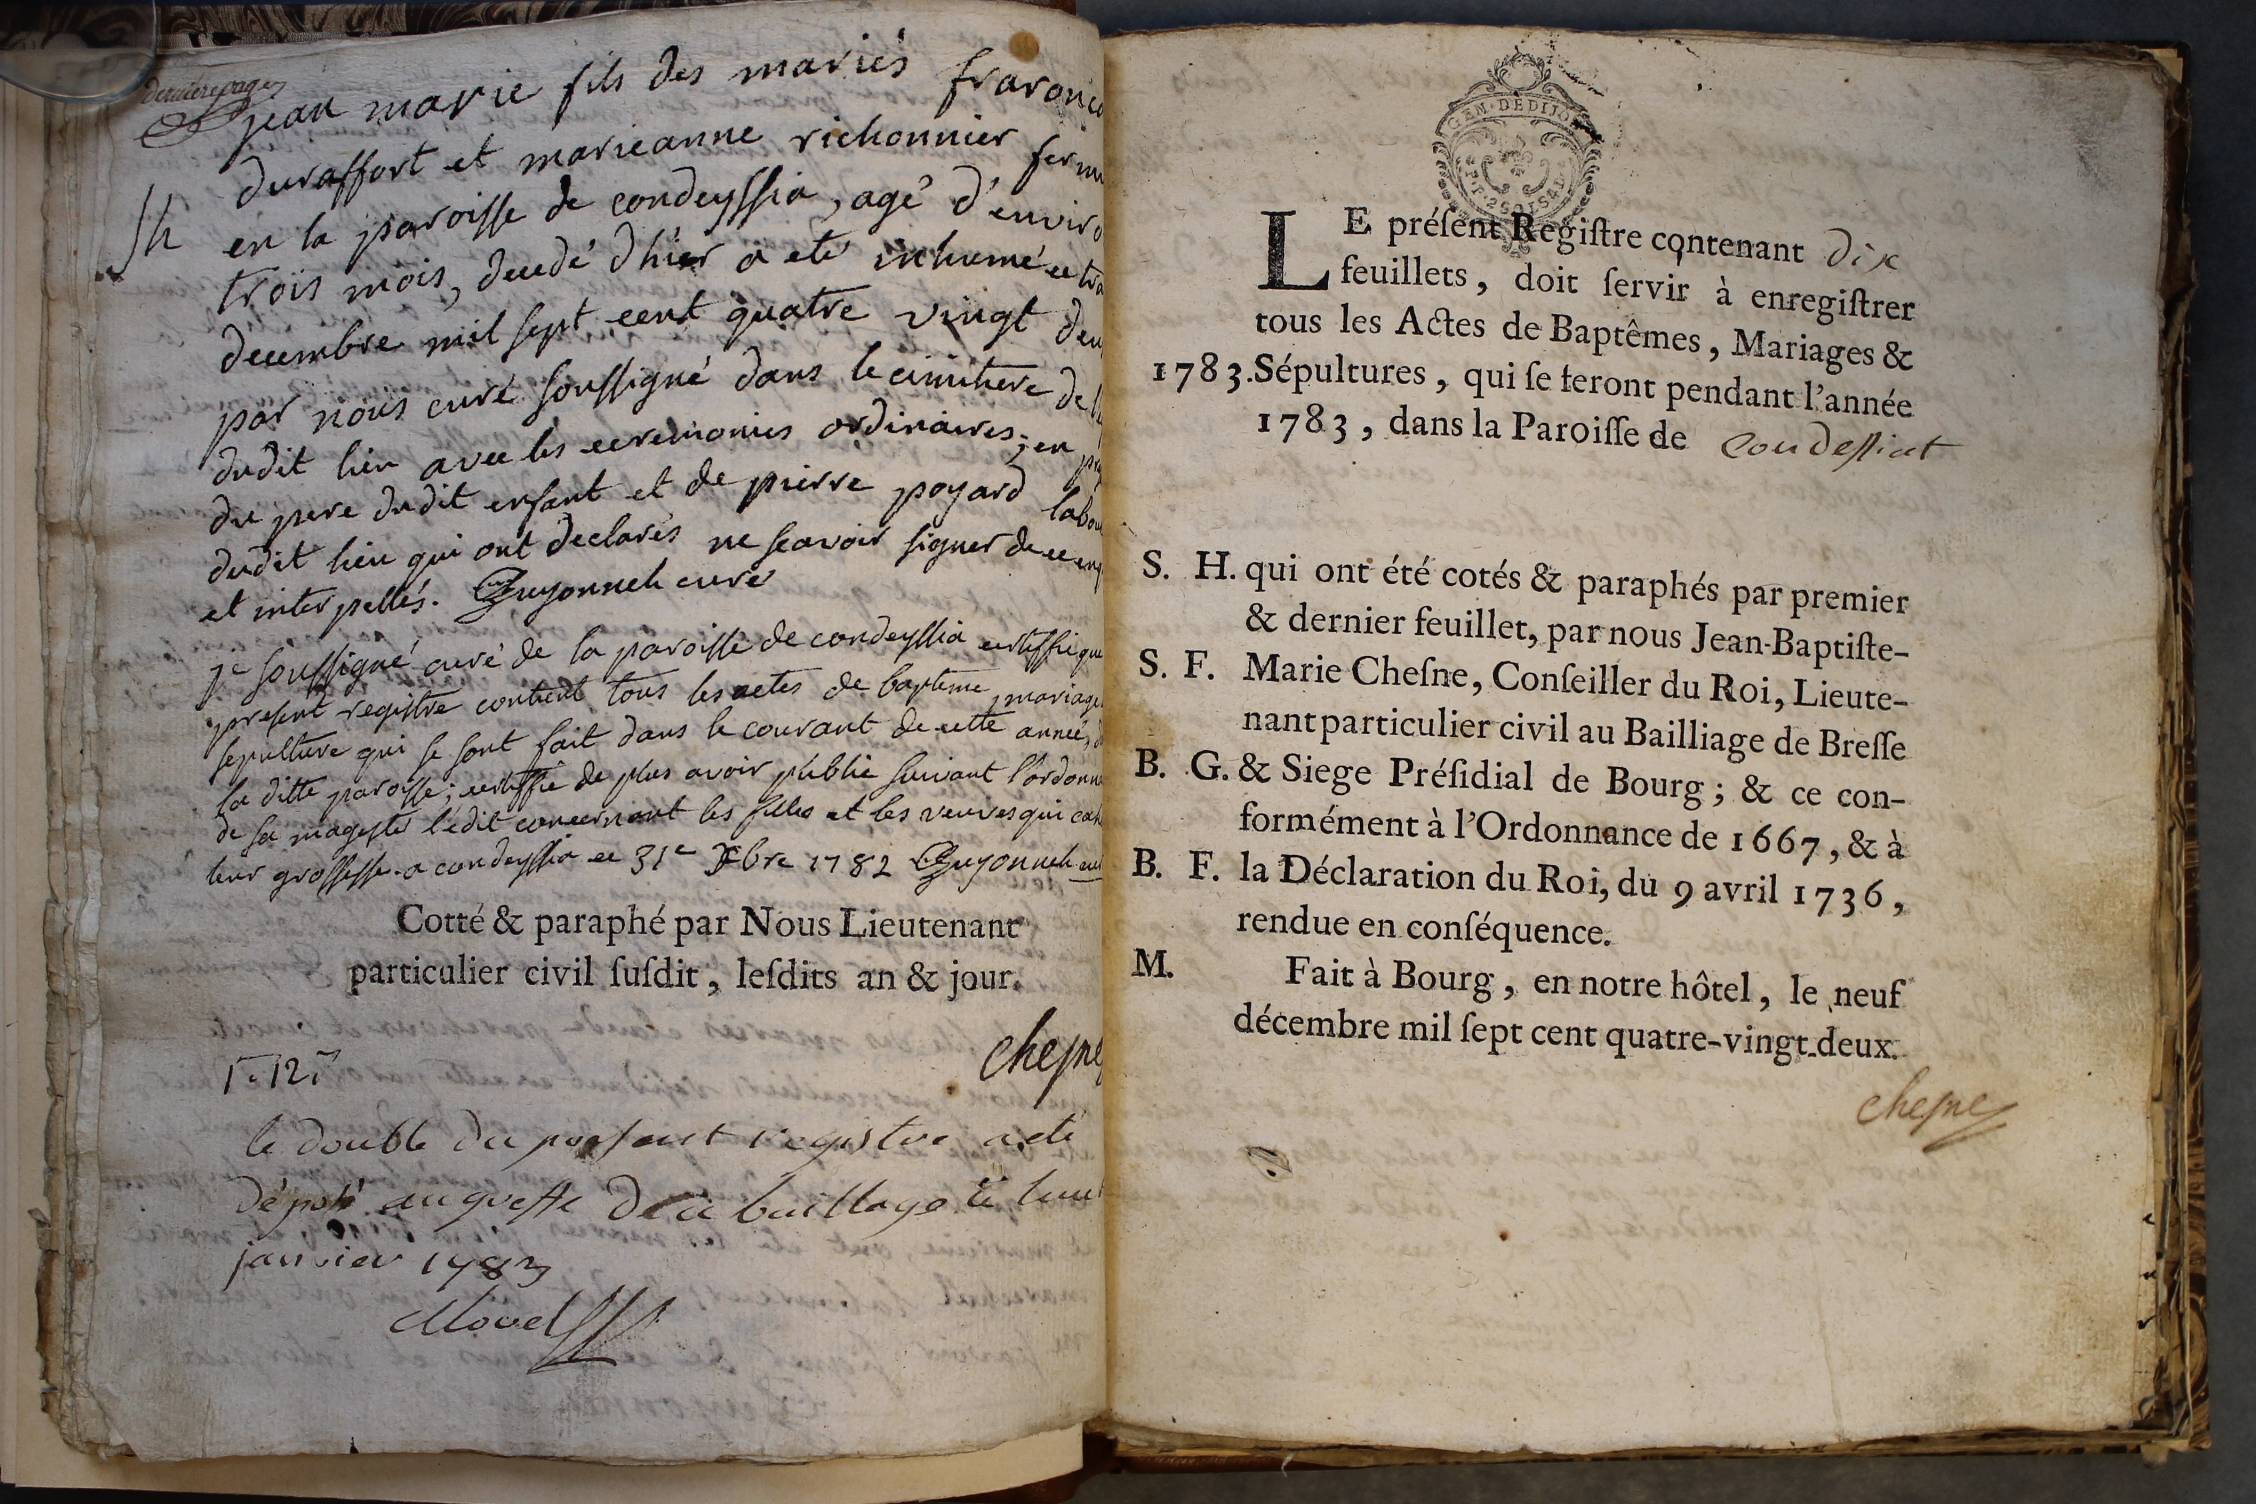 derniere page
jean marie fils des mariés
duraffort et marieanne richonnier
en la paroisse de condeyssia, agé d'enviro
trois mois, decedé d'hier a eté inhumé ce
decembre mil sept cent quatre vingt deu
par nous curé soussigné dans le cimitiere de
dudit lieu avec les ceremonies ordinaires; en
du pere dudit enfant et de pierre poyard labou
dudit lieu qui ont declarés ne scavoir signer de ce enq
et interpellés. Guyonneh curé
Sh
je soussigné curé de la paroisse de condeyssia certiffie que
present registre contient tous les actes de bapteme, mariage
sepulture qui se sont fait dans le courant de cette année, d
la ditte paroisse; certiffie de plus avoir publié suivant l'ordonn
de sa magesté l'edit concernant les filles et les veuves qui cach
leur grossesse. a condeyssia ce 31e Xbre 1782 Guyonneh
Cotté & paraphé par Nous Lieutenant
particulier civil ſuſdit, leſdits an & jour.
chesne
le double du present registre a eté
déposé au greffe de ce bailliage le huit
janvier 1783
GEN·DE DIJO
LE préſent Regiſtre contenant dix
feuillets, doit ſervir à enregiſtrer
tous les Actes de Baptêmes, Mariages &
1783. Sépultures, qui ſe feront pendant l'année
1783, dans la Paroiſſe de Condessiat
S. H. qui ont été cotés & paraphés par premier
& dernier feuillet, par nous Jean-Baptiſte-
S. F. Marie Cheſne, Conſeiller du Roi, Lieute-
nant particulier civil au Bailliage de Breſſe
B. G. & Siege Préſidial de Bourg; & ce con-
formément à l'Ordonnance de 1667, & à
B. F. la Déclaration du Roi, du 9 avril 1736,
rendue en conſéquence.
M. Fait à Bourg, en notre hôtel, le neuf
décembre mil ſept cent quatre-vingt-deux.
chesne